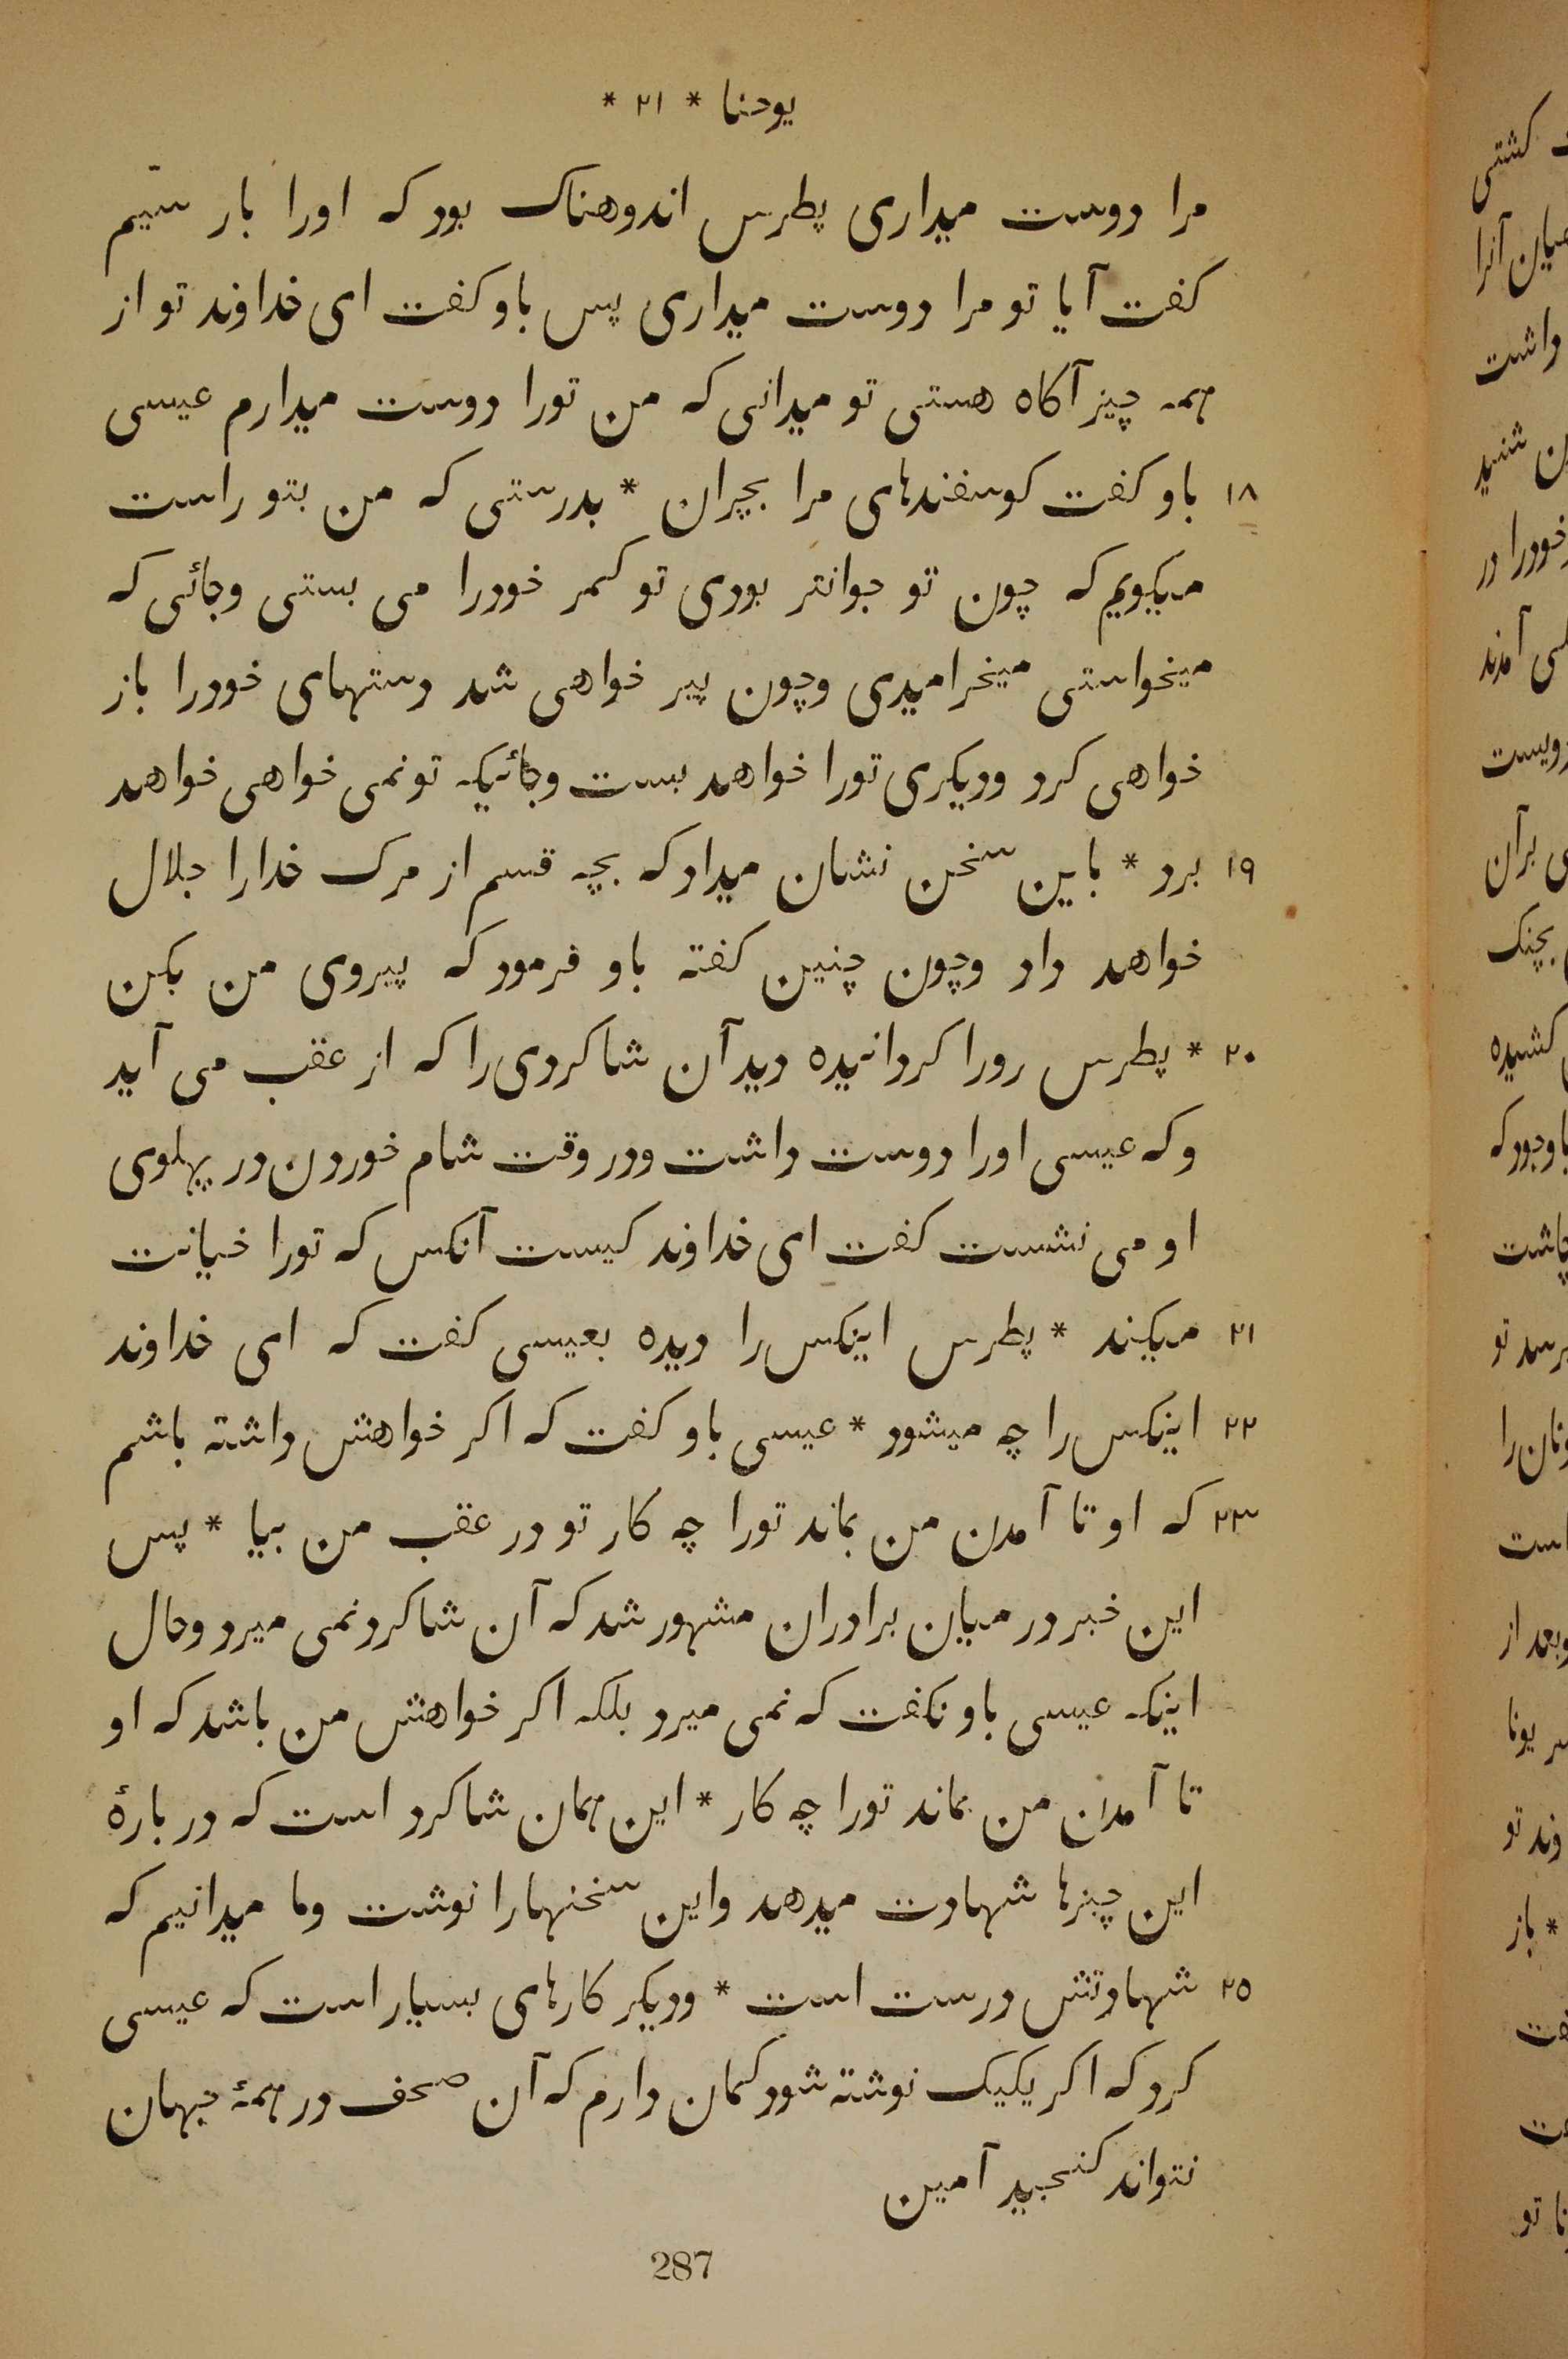 یوحنا * ۲۱ *
مرا دوست میداری پطرس اندوهناک بود که اورا بار سیّم
کفت آیا تو مرا دوست میداری پس باو کفت ای خداوند تو از
همه چیز آکاه هستی تو میدانی که من تورا دوست میدارم عیسی
۱۸ باو کفت کوسفندهای مرا بچران * بدرستی که من بتو راست
میکویم که چون تو جوانتر بودی تو کمر خودرا می بستی وجائی که
میخواستی میخرامیدی وچون پیر خواهی شد دستهای خودرا باز
خواهی کرد ودیکری تورا خواهد بست وجائیکه تو نمی خواهی خواهد
۱۹ برد * باین سخن نشان میداد که بچه قسم از مرک خدارا جلال
خواهد داد وچون چنین کفته باو فرمود که پیروی من بکن
۲۰ * پطرس رورا کردانیده دید آن شاکردی را که از عقب می آید
وکه عیسی اورا دوست داشت ودر وقت شام خوردن در پهلوی
او می نشست کفت ای خداوند کیست آنکس که تورا خیانت
۲۱ میکند * پطرس اینکس را دیده بعیسی کفت که ای خداوند
۲۲ اینکس را چه میشود * عیسی باو کفت که اکر خواهش داشته باشم
۲۳ که او تا آمدن من بماند تورا چه کار تو در عقب من بیا * پس
این خبر در میان برادران مشهور شد که آن شاکرد نمی میرد وحال
اینکه عیسی باو نکفت که نمی میرد بلکه اکر خواهش من باشد که او
تا آمدن من بماند تورا چه کار * این همان شاکرد است که در بارهٔ
این چیزها شهادت میدهد واین سخنهارا نوشت وما میدانیم که
۲۵ شهادتش درست است * ودیکر کارهای بسیار است که عیسی
کرد که اکر یکیک نوشته شود کمان دارم که آن صحف در همهٔ جهان
نتواند کنجید آمین
287